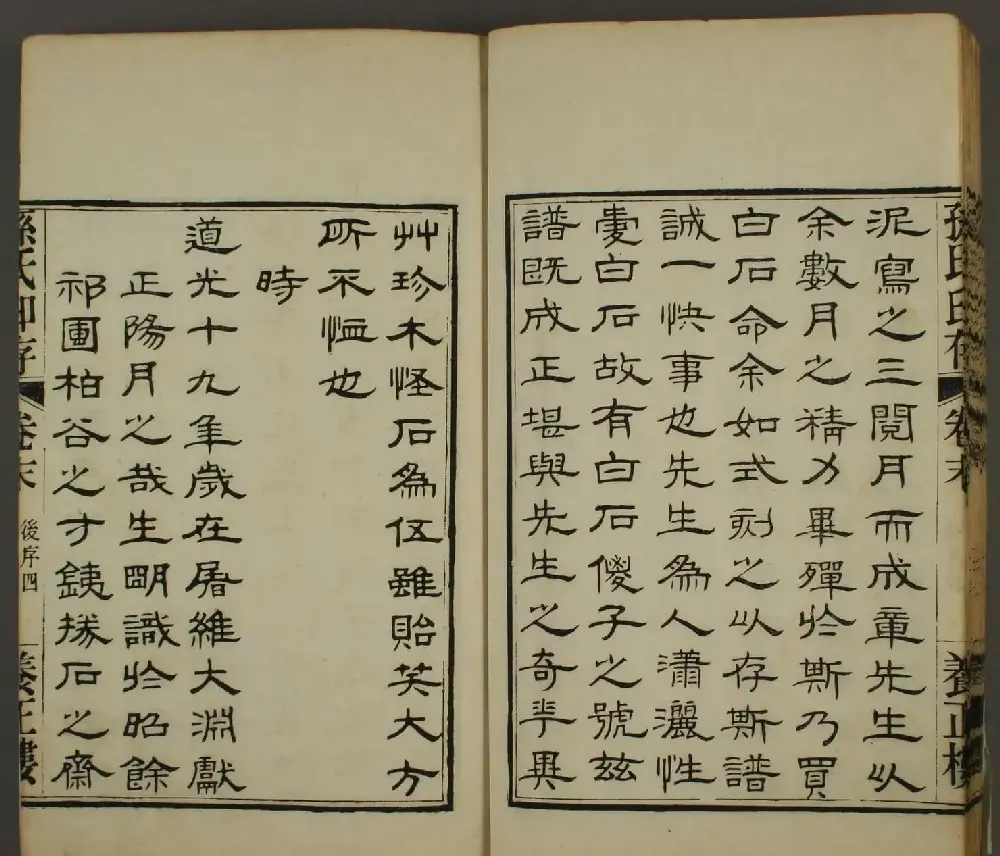 泥寫之三閱月而成章先生以
余數月之精力畢殫於斯乃買
白石命余如式刻之以存斯譜
誠一快事也先生為人瀟灑性
耽白石故有白石傻子之號茲
譜既成正堪與先生之奇乎異
艸珍木怪石為伍雖貽笑大方
所不恤也
時
道光十九年歲在屠維大淵獻
正陽月之哉生明識於昭餘
祁圃柏谷之才銕掾石之齋
孫氏印存
卷末
後序四
養正樓
孫氏印存
卷末
養正樓